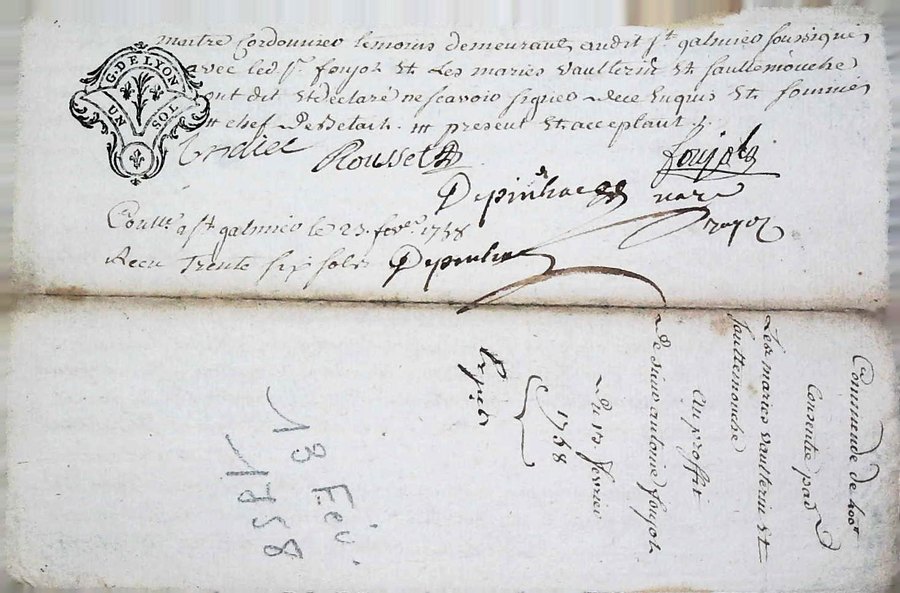 G. DE LYON
UN SOL
maitre Cordonnier temoins demeurant audit St. galmier soussignés
avec led. Sr. foujols et Les mariés vaulterin et sauttemouche
ont dit et declaré ne scavoir signer de ce Enquis et sommés
chef de Betail. present et acceptant
ROUSSEL foujols
Depinhac
royer
Conllé a St. galmier le 23. fevr. 1758
Recu Trente six sols Depinhac
Commande de
Consentie par
Les mariés vaulterin et
sauttemouche
au proffit
De sieur antoine foujols
Du 13 fevrier
1758
Expié
13 Fév.
1758